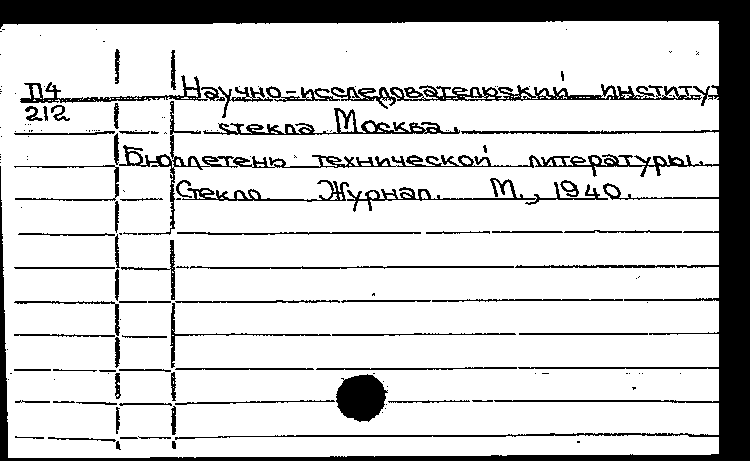 П4
212
Научно-исследовательский институт
стекла Москва.
Бюллетень технической литературы.
Стекло. Журнал. М., 1940.